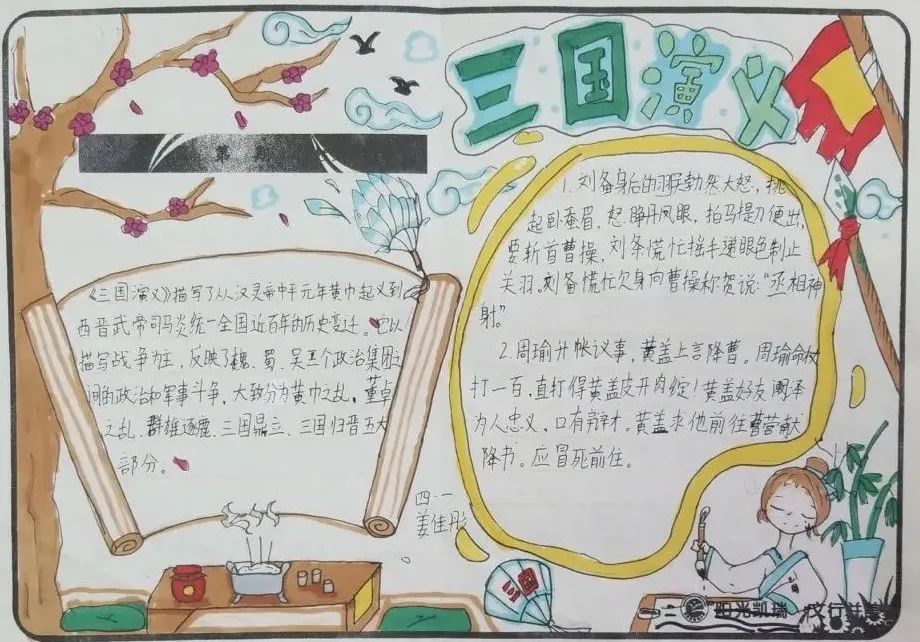 三国演义
《三国演义》描写了从汉灵帝中平元年黄巾起义到
西晋武帝司马炎统一全国近百年的历史变迁。它以
描写战争为主,反映了魏、蜀、吴三个政治集团之
间的政治和军事斗争,大致分为黄巾之乱、董卓
之乱、群雄逐鹿、三国鼎立、三国归晋五大
部分。
1.刘备身后的羽勃然大怒,挑
起卧蚕眉,怒睁丹凤眼,拍马提刀便出,
要斩首曹操,刘备慌忙摇手递眼色制止
关羽。刘备慌忙欠身向曹操称贺说:“丞相神
射。”
2.周瑜升帐议事,黄盖上言降曹。周瑜命杖
打一百,直打得黄盖皮开肉绽!黄盖好友阚泽
为人忠义,口有辩才。黄盖求他前往曹营献
降书。应冒死前往。
四·一
姜佳彤
三国
阳光凯瑞